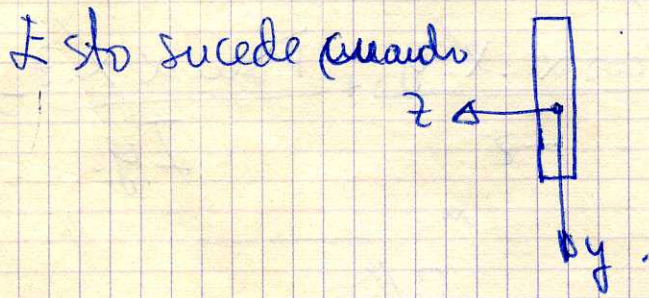 Esto sucede cuando
z
y.